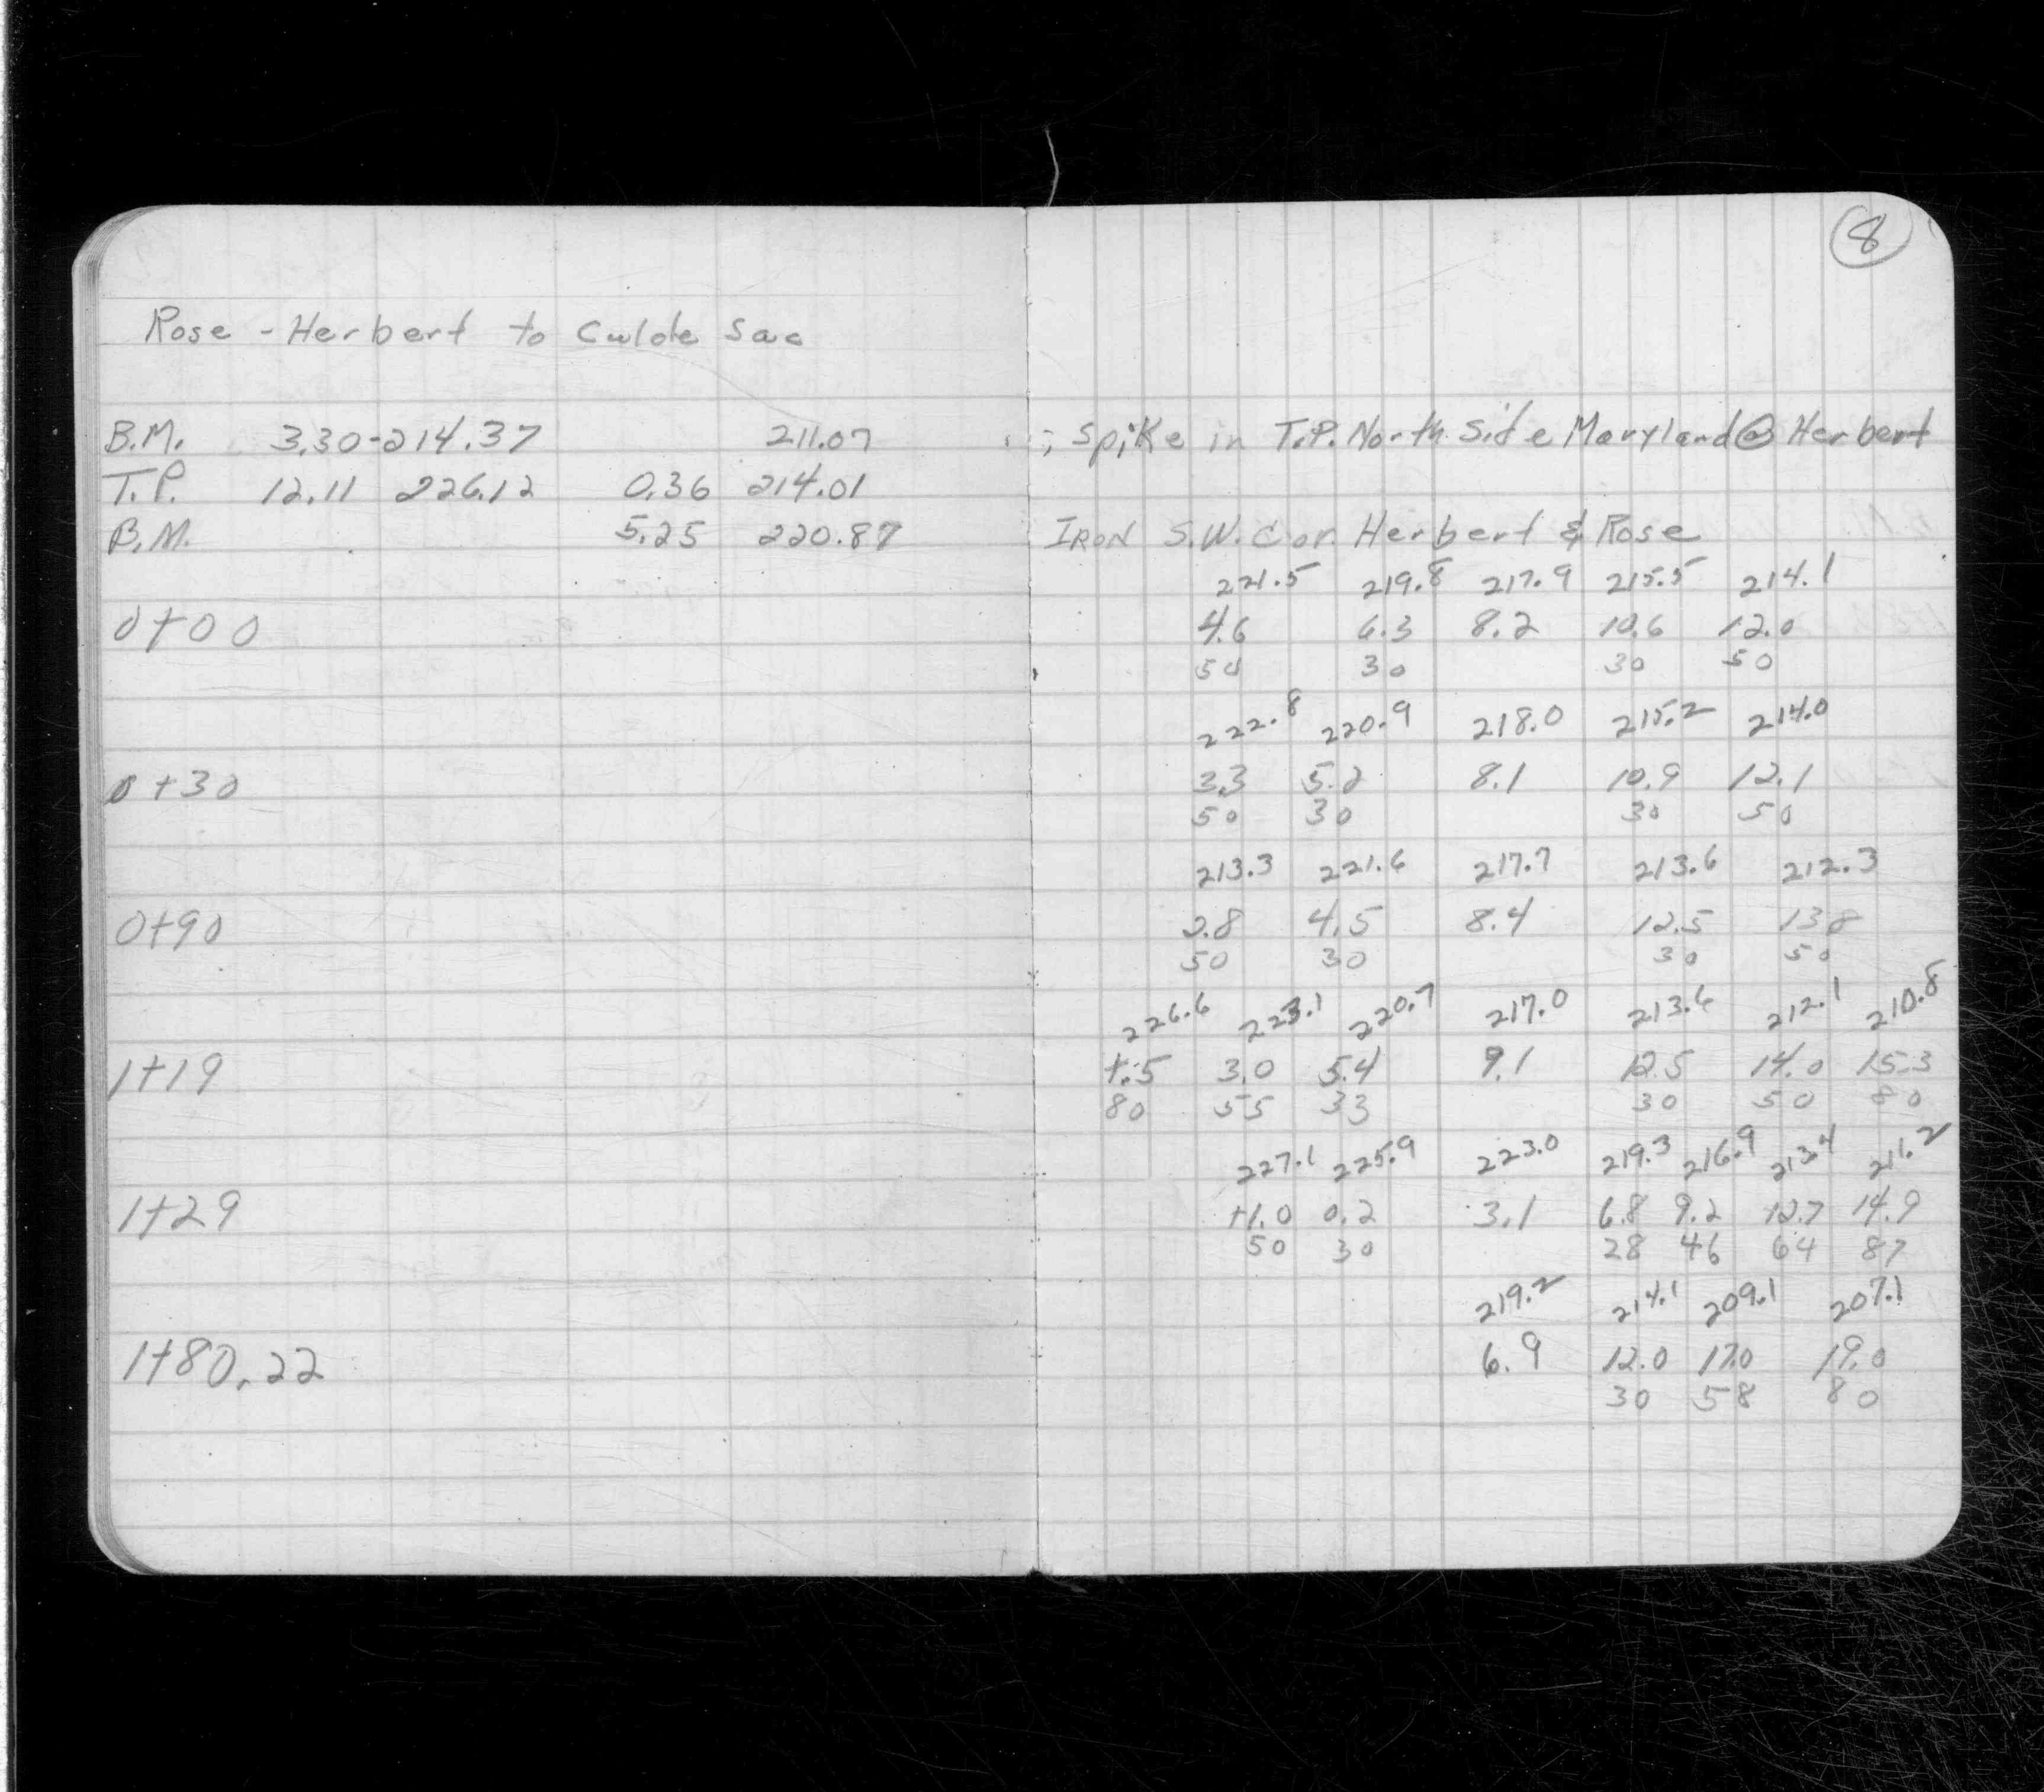 8
Rose - Herbert to Culde Sac
B.M. 3.30 - 214.37 211.07 ; Spike in T.P. North Side Maryland @ Herbert
T.P. 12.11 226.12 0.36 214.01
B.M. 5.25 220.87 IRON S.W. Cor. Herbert & Rose
221.5 219.8 217.9 215.5 214.1
0+00 4.6 6.3 8.2 10.6 12.0
50 30 30 50
222.8 220.9 218.0 215.2 214.0
0+30 3.3 5.2 8.1 10.9 12.1
50 30 30 50
213.3 221.6 217.7 213.6 212.3
0+90 2.8 4.5 8.4 12.5 13.8
50 30 30 50
226.6 223.1 220.7 217.0 213.6 212.1 210.8
1+19 +.5 3.0 5.4 9.1 12.5 14.0 15.3
80 55 33 30 50 80
227.1 225.9 223.0 219.3 216.9 213.4 211.2
1+29 +1.0 0.2 3.1 6.8 9.2 12.7 14.9
50 30 28 46 64 87
219.2 214.1 209.1 207.1
1+80.22 6.9 12.0 17.0 19.0
30 58 80